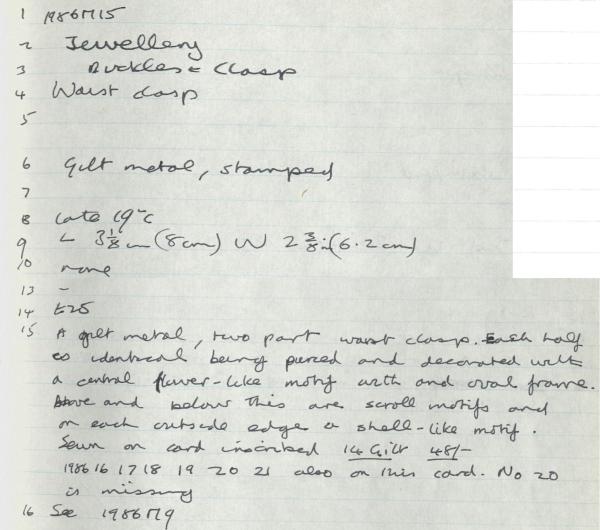 1 1986M15
2 Jewellery
3 Buckles & Clasp
4 Waist clasp
5
6 Gilt metal, stamped
7
8 Late 19th C
9 L 3 1/8 in (8cm) W 2 3/8 in (6.2cm)
10 none
13 -
14 £25
15 A gilt metal, two part waist clasp. Each half
is identical being pierced and decorated with
a central flower-like motif with and oval frame.
Above and below this are scroll motifs and
on each outside edge a shell-like motif.
Sewn on card inscribed 14 Gilt 48/-
1986 16 17 18 19 20 21 also on this card. No 20
is missing
16 See 1986M9